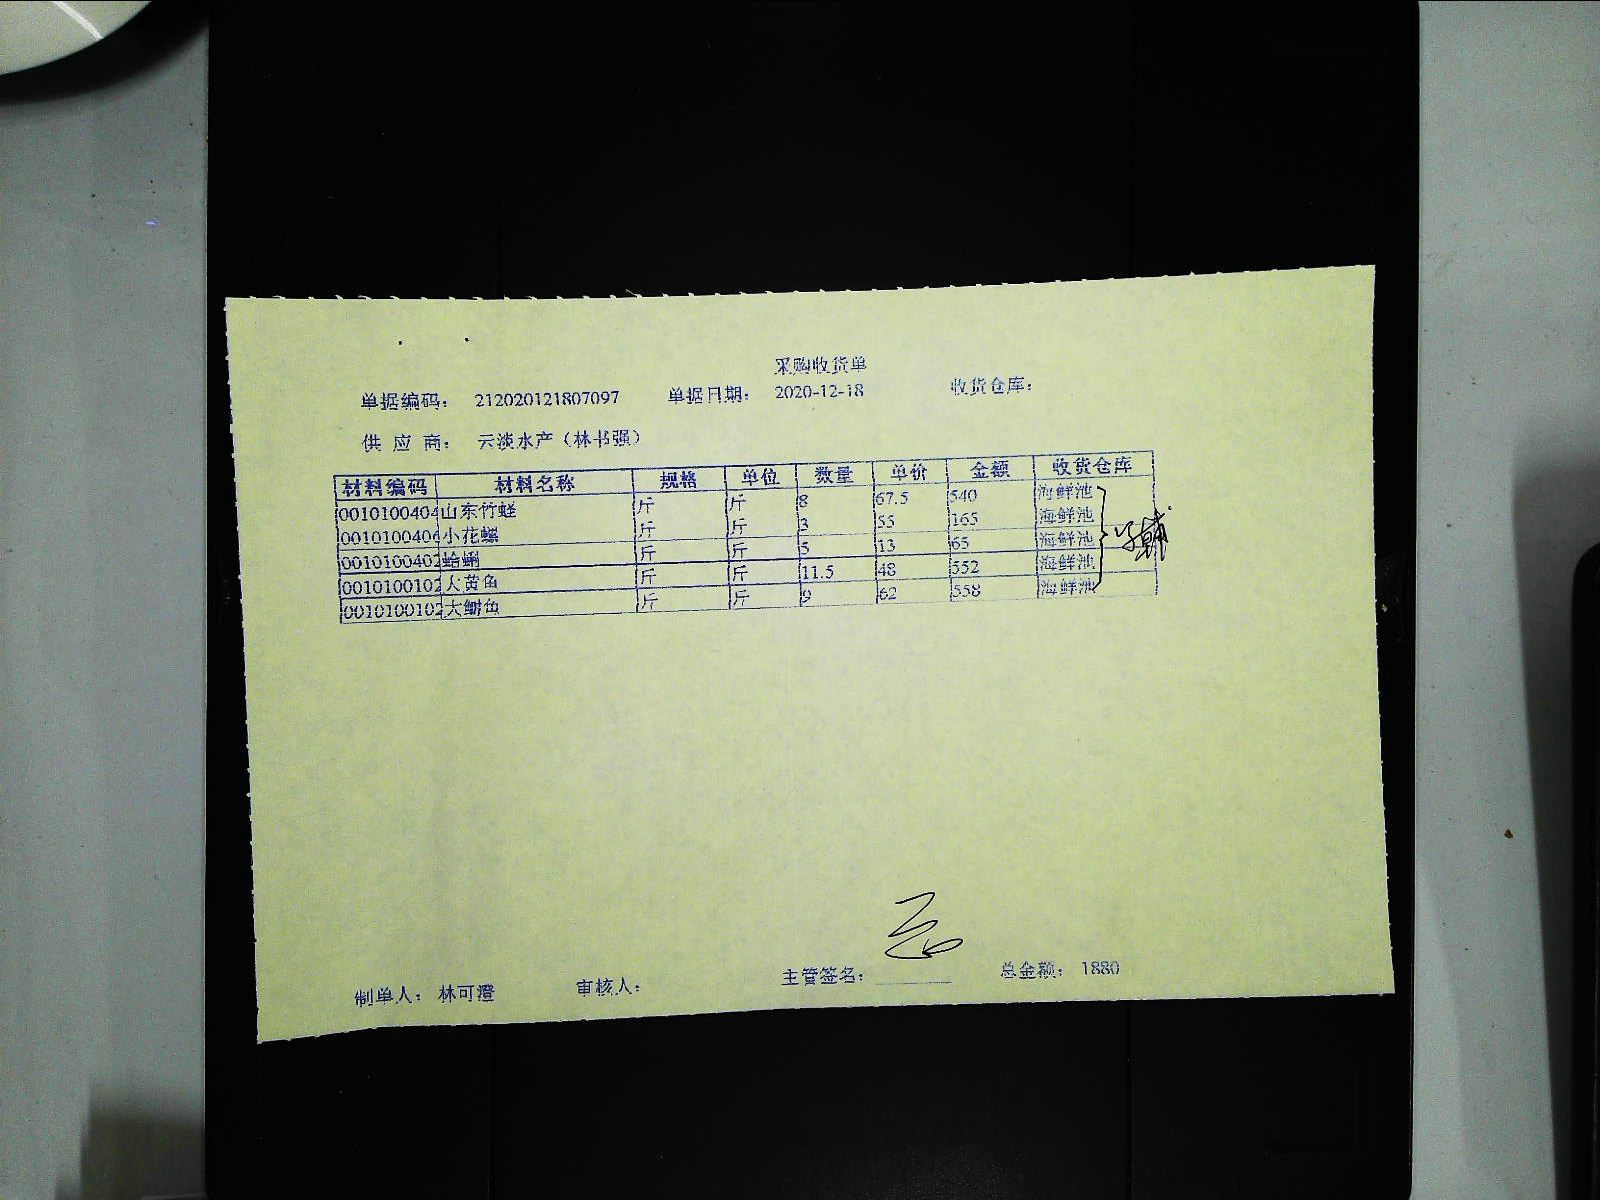 采购收货单
单据编码： 212020121807097 单据日期： 2020-12-18 收货仓库：
供 应 商： 云淡水产（林书强）
材料编码 材料名称 规格 单位 数量 单价 金额 收货仓库
0010100404 山东竹蛏 斤 斤 8 67.5 540 海鲜池
001010040 小花螺 斤 斤 3 55 165 海鲜池
001010040 蛤蜊 斤 斤 5 13 65 海鲜池
001010010 大黄鱼 斤 斤 11.5 48 552 海鲜池
001010010 斤 斤 9 62 558 海鲜池
制单人： 林可澄 审核人： 主管签名： 总金额： 1880